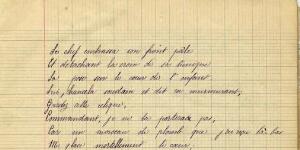 Le chef embrassa son front pâle
Et détachant la croix de sa
La posa sur le cœur de l'enfant.
soudain et dit en murmurant,
Gardez cette relique,
Commandant, je ne la porterais pas,
Car un morceau de plomb que j'ai reçu là bas
M'a mortellement le cœur,